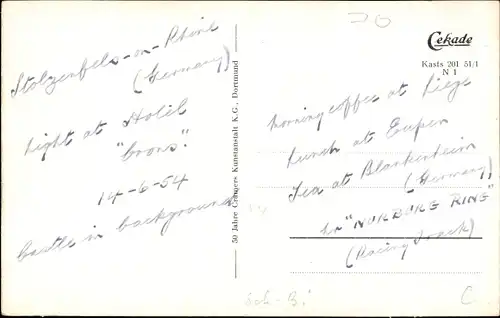 Stolzenfels-on-Rhine
(Germany)
Night at Hotel
"Crons".
14-6-54
Castle in background
50 Jahre Crüwers Kunstanstalt K.G., Dortmund
Cekade
Kasts 201 51/1
N 1
Morning coffee at Liege
Lunch at Eupen
Tea at Blankenheim
(Germany)
"NURBURG RING"
(Racing Track)